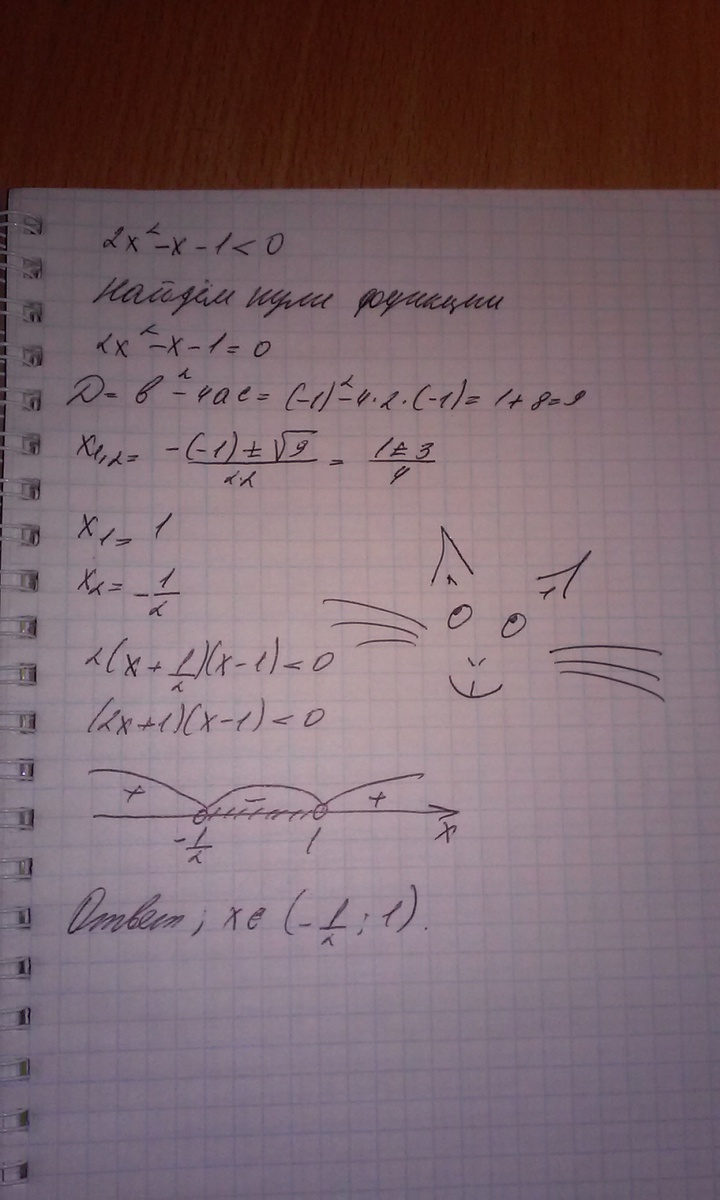 2x²-x-1<0
Найдём нули функции
2x²-x-1=0
D= в²-4ac= (-1)²-4·2·(-1)= 1+8=9
x₁,₂= -(-1)±√9/2·2 = 1±3/4
x₁= 1
x₂= -1/2
2(x+1/2)(x-1)<0
(2x+1)(x-1)<0
+ - +
-1/2 1 x
Ответ; x∈(-1/2;1).